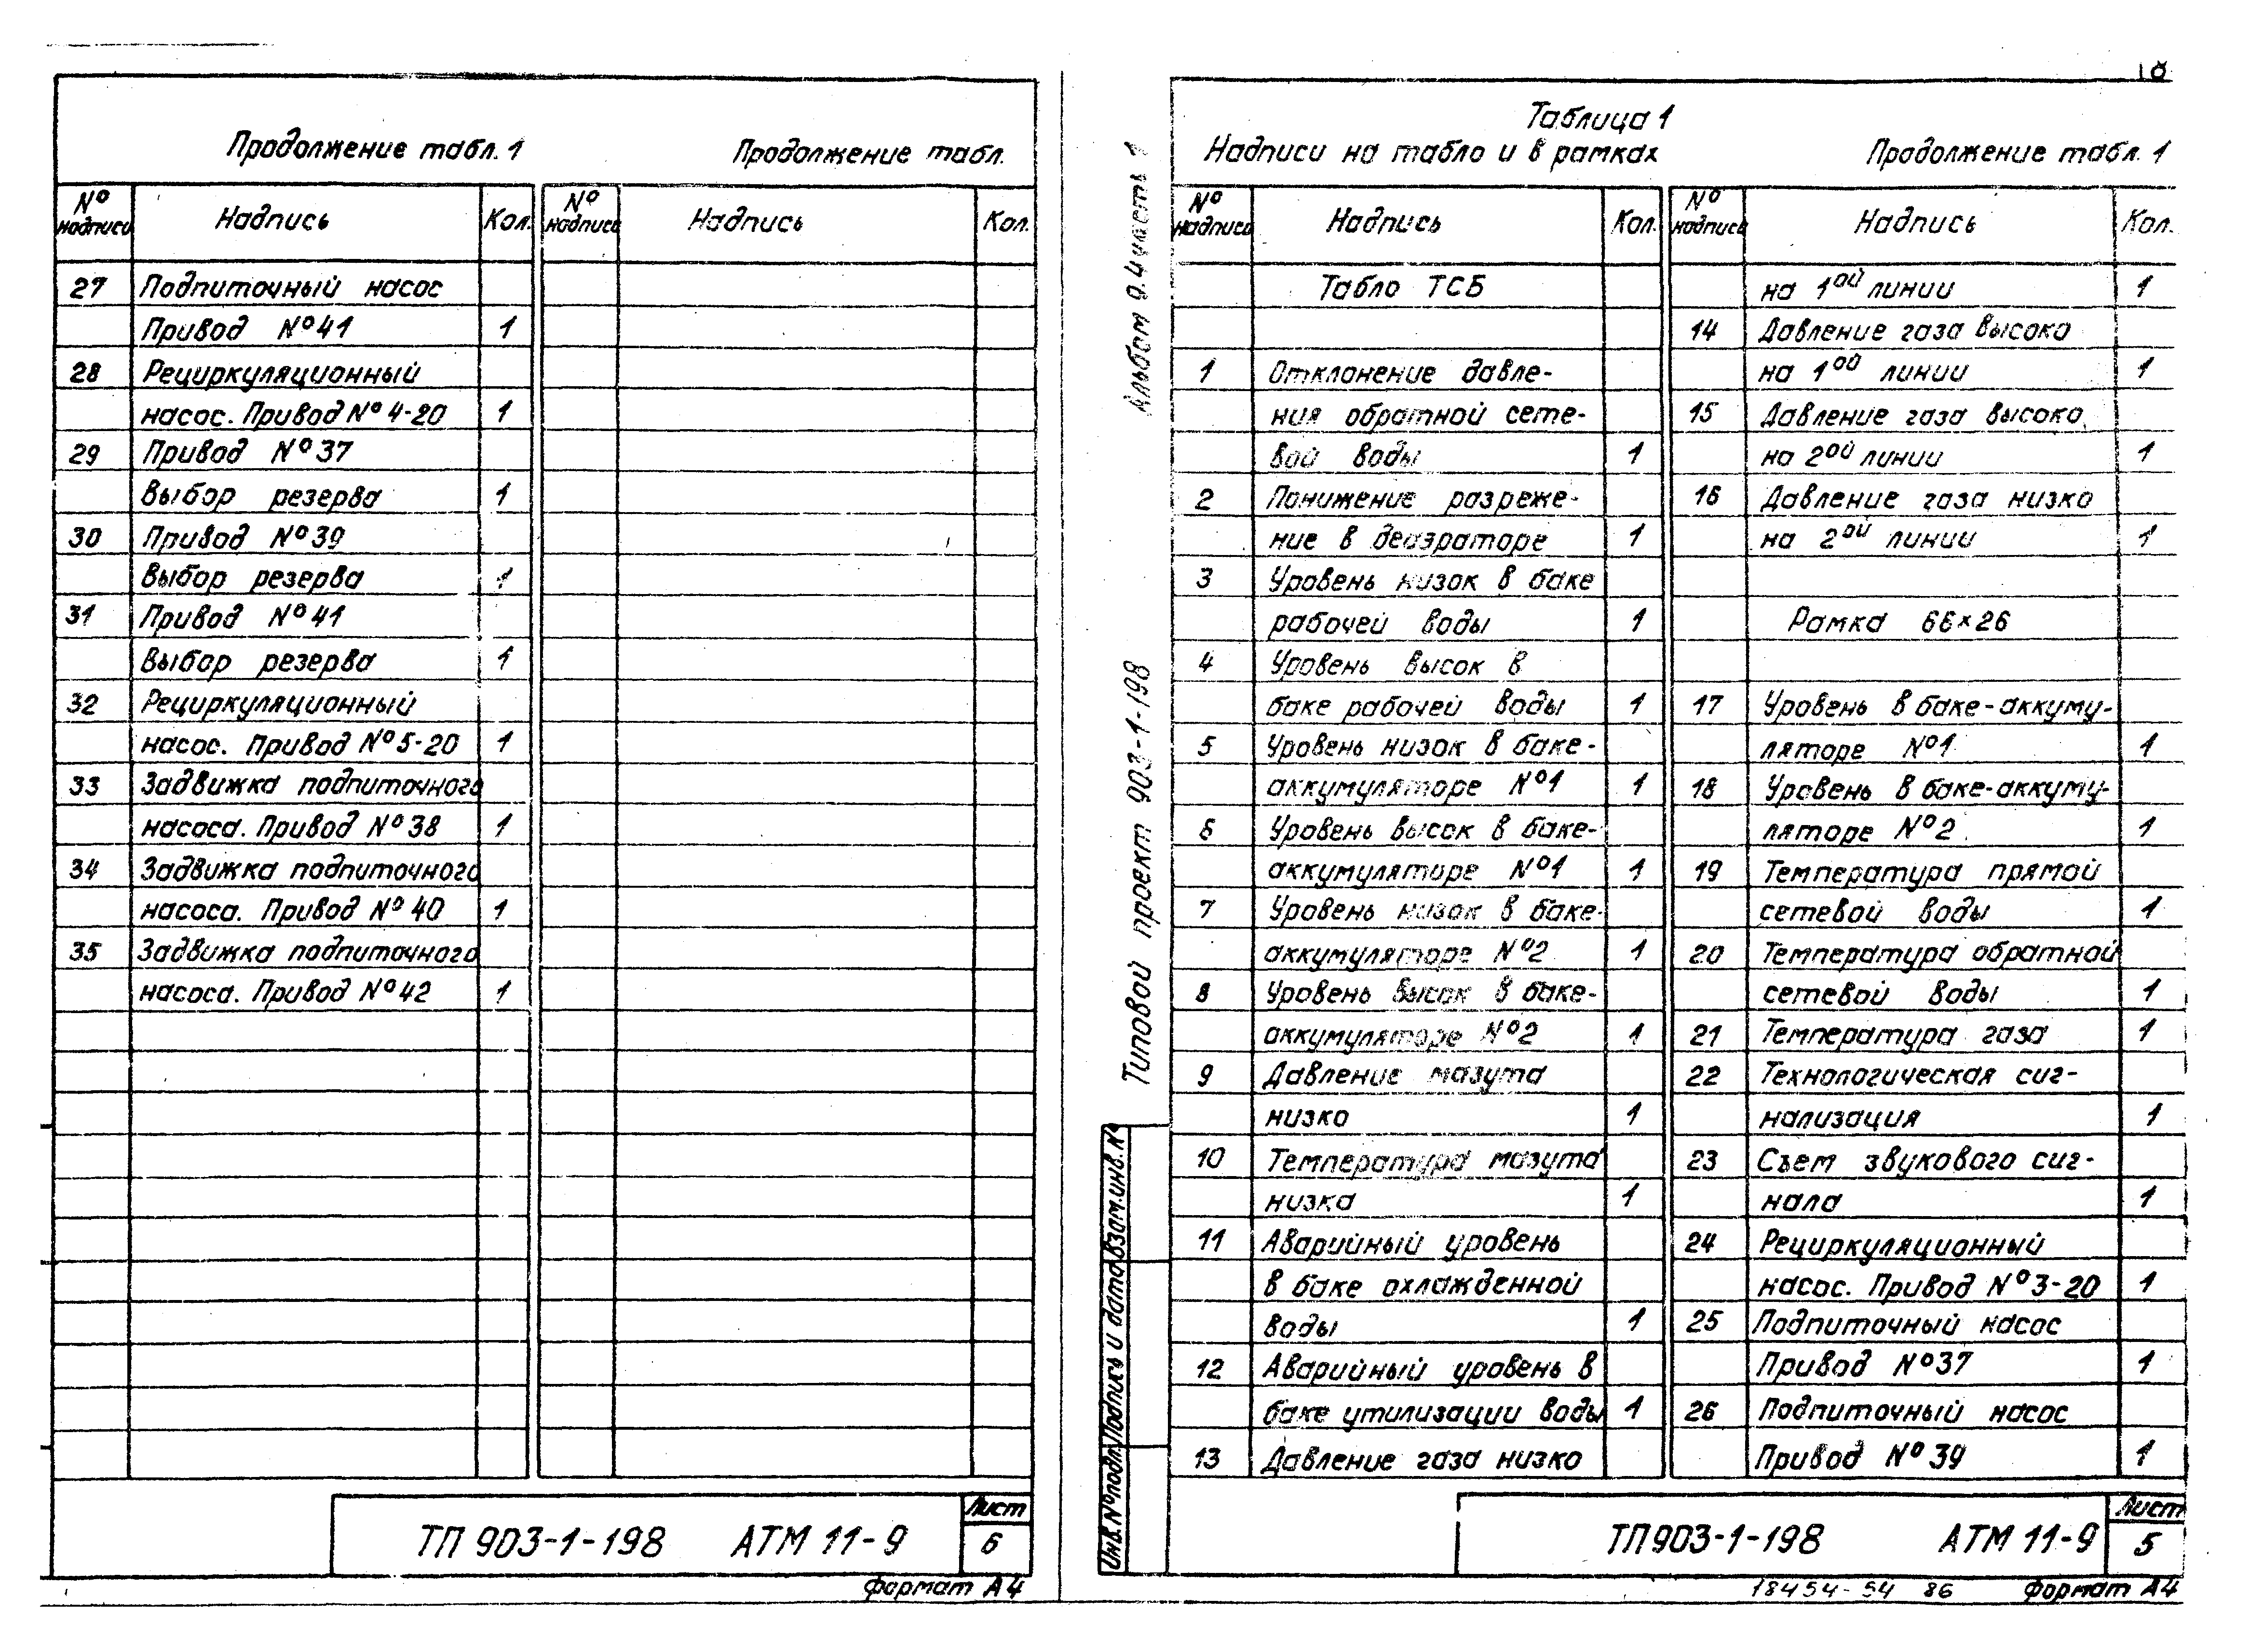 Продолжение табл. 1
Продолжение табл.
№ надписи Надпись Кол. № надписи Надпись Кол.
27 Подпиточный насос
Привод №41 1
28 Рециркуляционный
насос. Привод №4-20 1
29 Привод №37
Выбор резерва 1
30 Привод №39
Выбор резерва 1
31 Привод №41
Выбор резерва 1
32 Рециркуляционный
насос. Привод №5-20 1
33 Задвижка подпиточного
насоса. Привод №38 1
34 Задвижка подпиточного
насоса. Привод №40 1
35 Задвижка подпиточного
насоса. Привод №42 1
ТП 903-1-198 АТМ 11-9
Лист
6
Формат А4
Альбом 9.4 часть 1
Типовой проект 903-1-198
Взам.инв.№
Подпись и дата
Инв.№подл.
Таблица 1
Надписи на табло и в рамках
№ надписи Надпись Кол.
Табло ТСБ
1 Отклонение давле-
ния обратной сете-
вой воды 1
2 Понижение разреже-
ние в деаэраторе 1
3 Уровень низок в баке
рабочей воды 1
4 Уровень высок в
баке рабочей воды 1
5 Уровень низок в баке-
аккумуляторе №1 1
6 Уровень высок в баке-
аккумуляторе №1 1
7 Уровень низок в баке-
аккумуляторе №2 1
8 Уровень высок в баке-
аккумуляторе №2 1
9 Давление мазута
низко 1
10 Температура мазута
низка 1
11 Аварийный уровень
в баке охлажденной
воды 1
12 Аварийный уровень в
баке утилизации воды 1
13 Давление газа низко
Продолжение табл. 1
№ надписи Надпись Кол.
на 1ой линии 1
14 Давление газа высоко
на 1ой линии 1
15 Давление газа высоко
на 2ой линии 1
16 Давление газа низко
на 2ой линии 1
Рамка 66×26
17 Уровень в баке-аккуму-
ляторе №1 1
18 Уровень в баке-аккуму-
ляторе №2 1
19 Температура прямой
сетевой воды 1
20 Температура обратной
сетевой воды 1
21 Температура газа 1
22 Технологическая сиг-
нализация 1
23 Съем звукового сиг-
нала 1
24 Рециркуляционный
насос. Привод №3-20 1
25 Подпиточный насос
Привод №37 1
26 Подпиточный насос
Привод №39 1
ТП903-1-198 АТМ 11-9
Лист
5
18454-54 86 Формат А4